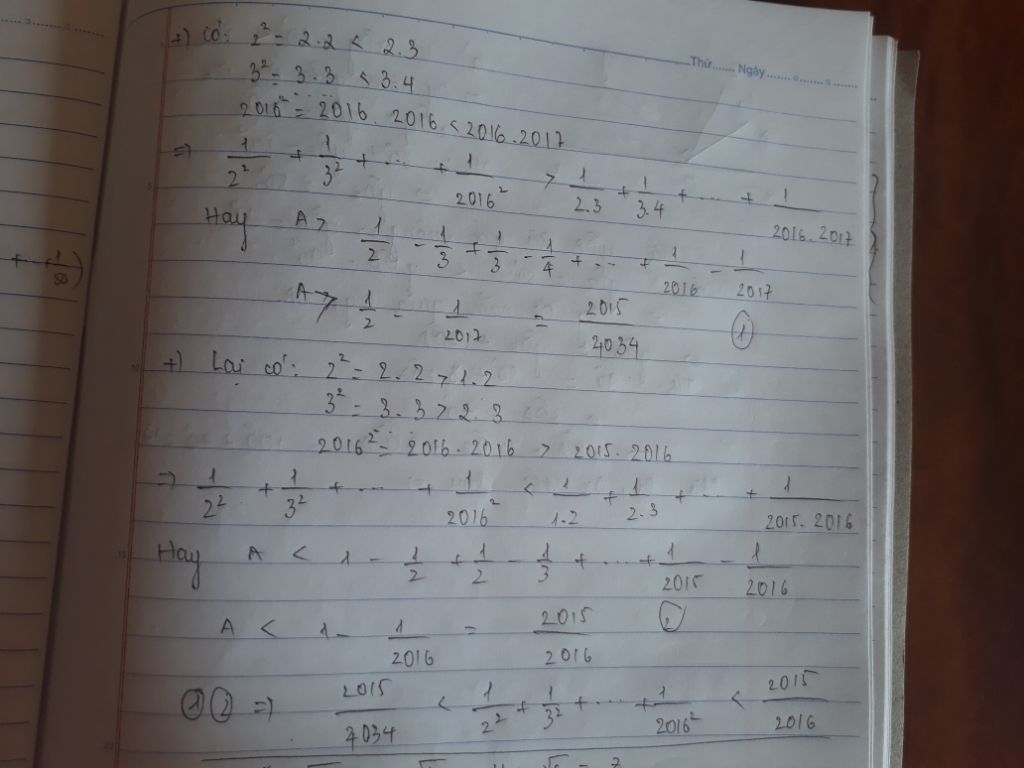 Thứ...... Ngày
+) Có: 2² = 2.2 < 2.3
3² = 3.3 < 3.4
2016² = 2016.2016 < 2016.2017
=> 1/2² + 1/3² + ... + 1/2016² > 1/2.3 + 1/3.4 + ... + 1/2016.2017
Hay A > 1/2 - 1/3 + 1/3 - 1/4 + ... + 1/2016 - 1/2017
+ ... + 1/50)
A > 1/2 - 1/2017 = 2015/4034 (1)
+) Lại có: 2² = 2.2 > 1.2
3² = 3.3 > 2.3
2016² = 2016.2016 > 2015.2016
=> 1/2² + 1/3² + ... + 1/2016² < 1/1.2 + 1/2.3 + ... + 1/2015.2016
Hay A < 1 - 1/2 + 1/2 - 1/3 + ... + 1/2015 - 1/2016
A < 1 - 1/2016 = 2015/2016 (2)
(1)(2) => 2015/4034 < 1/2² + 1/3² + ... + 1/2016² < 2015/2016